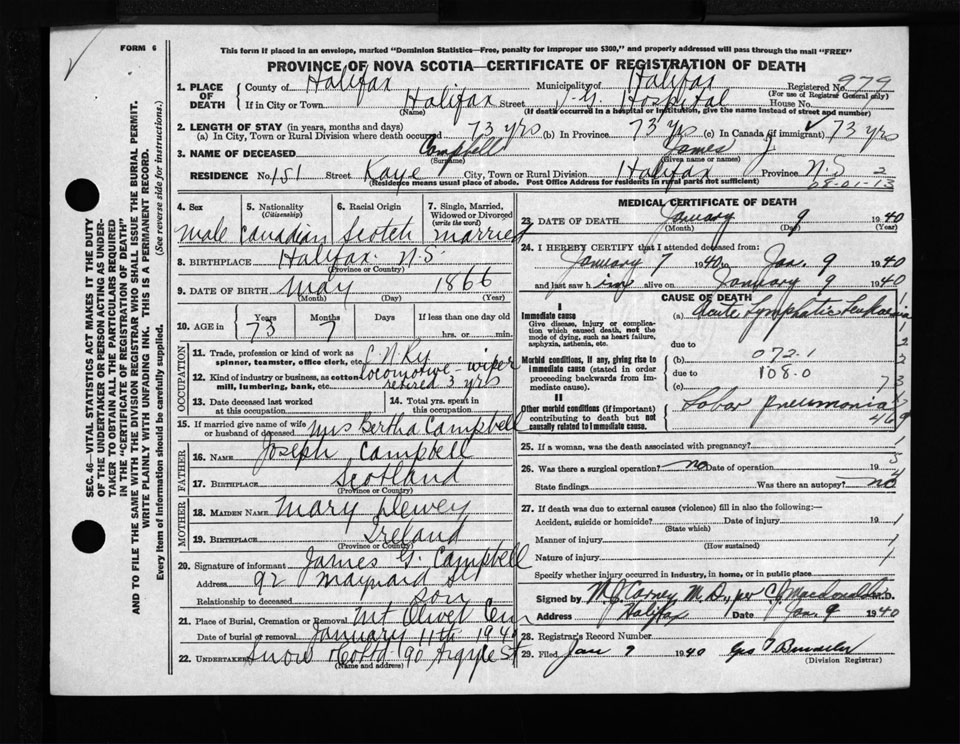 FORM 6
This form if placed in an envelope, marked "Dominion Statistics—Free, penalty for improper use $300," and properly addressed will pass through the mail "FREE"
PROVINCE OF NOVA SCOTIA—CERTIFICATE OF REGISTRATION OF DEATH
SEC. 46—VITAL STATISTICS ACT MAKES IT THE DUTY
OF THE UNDERTAKER OR PERSON ACTING AS UNDER-
TAKER TO OBTAIN ALL THE PARTICULARS REQUIRED
IN THE "CERTIFICATE OF REGISTRATION OF DEATH"
AND TO FILE THE SAME WITH THE DIVISION REGISTRAR WHO SHALL ISSUE THE BURIAL PERMIT.
WRITE PLAINLY WITH UNFADING INK. THIS IS A PERMANENT RECORD.
Every item of Information should be carefully supplied. (See reverse side for instructions.)
1. PLACE OF DEATH County of Halifax Municipality of Halifax Registered No. 979
(For use of Registrar General only)
If in City or Town Halifax Street V-G Hospital House No.
(Name) (If death occurred in a hospital or institution, give the name instead of street and number)
2. LENGTH OF STAY (in years, months and days)
(a) In City, Town or Rural Division where death occurred 73 yrs (b) In Province 73 yrs (c) In Canada (if immigrant) 73 yrs
3. NAME OF DECEASED Campbell James J
(Surname) (Given name or names)
RESIDENCE No. 151 Street Kaye City, Town or Rural Division Halifax Province N.S 2
(Residence means usual place of abode. Post Office Address for residents in rural parts not sufficient) 08-01-13
4. Sex 5. Nationality (Citizenship) 6. Racial Origin 7. Single, Married, Widowed or Divorced (write the word)
Male Canadian Scotch Married
8. BIRTHPLACE Halifax N.S.
(Province or Country)
9. DATE OF BIRTH May 1866
(Month) (Day) (Year)
10. AGE in Years Months Days If less than one day old
73 7 hrs. or min.
OCCUPATION
11. Trade, profession or kind of work as spinner, teamster, office clerk, etc. C.N.Ry
12. Kind of industry or business, as cotton mill, lumbering, bank, etc. locomotive - wiper retired 3 yrs
13. Date deceased last worked at this occupation
14. Total yrs. spent in this occupation
15. If married give name of wife or husband of deceased Mrs Bertha Campbell
FATHER
16. NAME Joseph Campbell
17. BIRTHPLACE Scotland
(Province or Country)
MOTHER
18. MAIDEN NAME Mary Dewey
19. BIRTHPLACE Ireland
(Province or Country)
20. Signature of informant James G. Campbell
Address 92 Maynard St
Relationship to deceased Son
21. Place of Burial, Cremation or Removal Mt Olivet Cem
Date of burial or removal January 11th 1940
22. UNDERTAKER Snow & Co Ltd - 90 Argyle St
(Name and address)
MEDICAL CERTIFICATE OF DEATH
23. DATE OF DEATH January 9 1940
(Month) (Day) (Year)
24. I HEREBY CERTIFY that I attended deceased from:
January 7 1940 to Jan. 9 1940
and last saw him alive on January 9 1940
CAUSE OF DEATH
I
Immediate cause
Give disease, injury or complication which caused death, not the mode of dying, such as heart failure, asphyxia, asthenia, etc.
(a) Acute Lymphatic Leukaemia
due to
Morbid conditions, if any, giving rise to immediate cause (stated in order proceeding backwards from immediate cause).
(b) 072.1
due to 108.0
(c) 73
II
Other morbid conditions (if important) contributing to death but not causally related to immediate cause.
Lobar pneumonia
25. If a woman, was the death associated with pregnancy?
26. Was there a surgical operation? no Date of operation 19
State findings Was there an autopsy? no
27. If death was due to external causes (violence) fill in also the following:—
Accident, suicide or homicide? Date of injury 19
(State which)
Manner of injury
(How sustained)
Nature of injury
Specify whether injury occurred in industry, in home, or in public place
Signed by M.J. Carney M.D., per C.J. Macdonald M.D.
Address Halifax Date Jan. 9 1940
28. Registrar's Record Number
29. Filed Jan 9 1940
(Division Registrar)